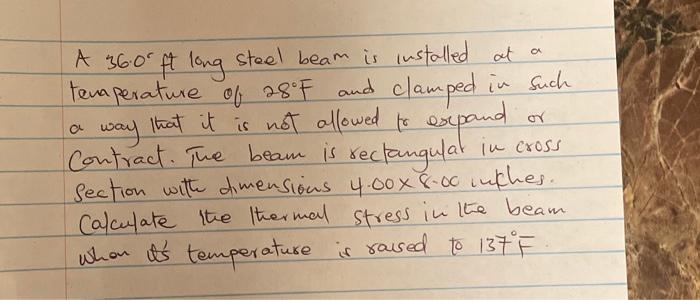 A 36.0 ft long steel beam is installed at a
temperature of 28°F and clamped in such
a way that it is not allowed to expand or
Contract. The beam is rectangular in cross
Section with dimensions 4.00 x 8.00 inches.
Calculate the thermal stress in the beam
when it's temperature is raised to 137°F.